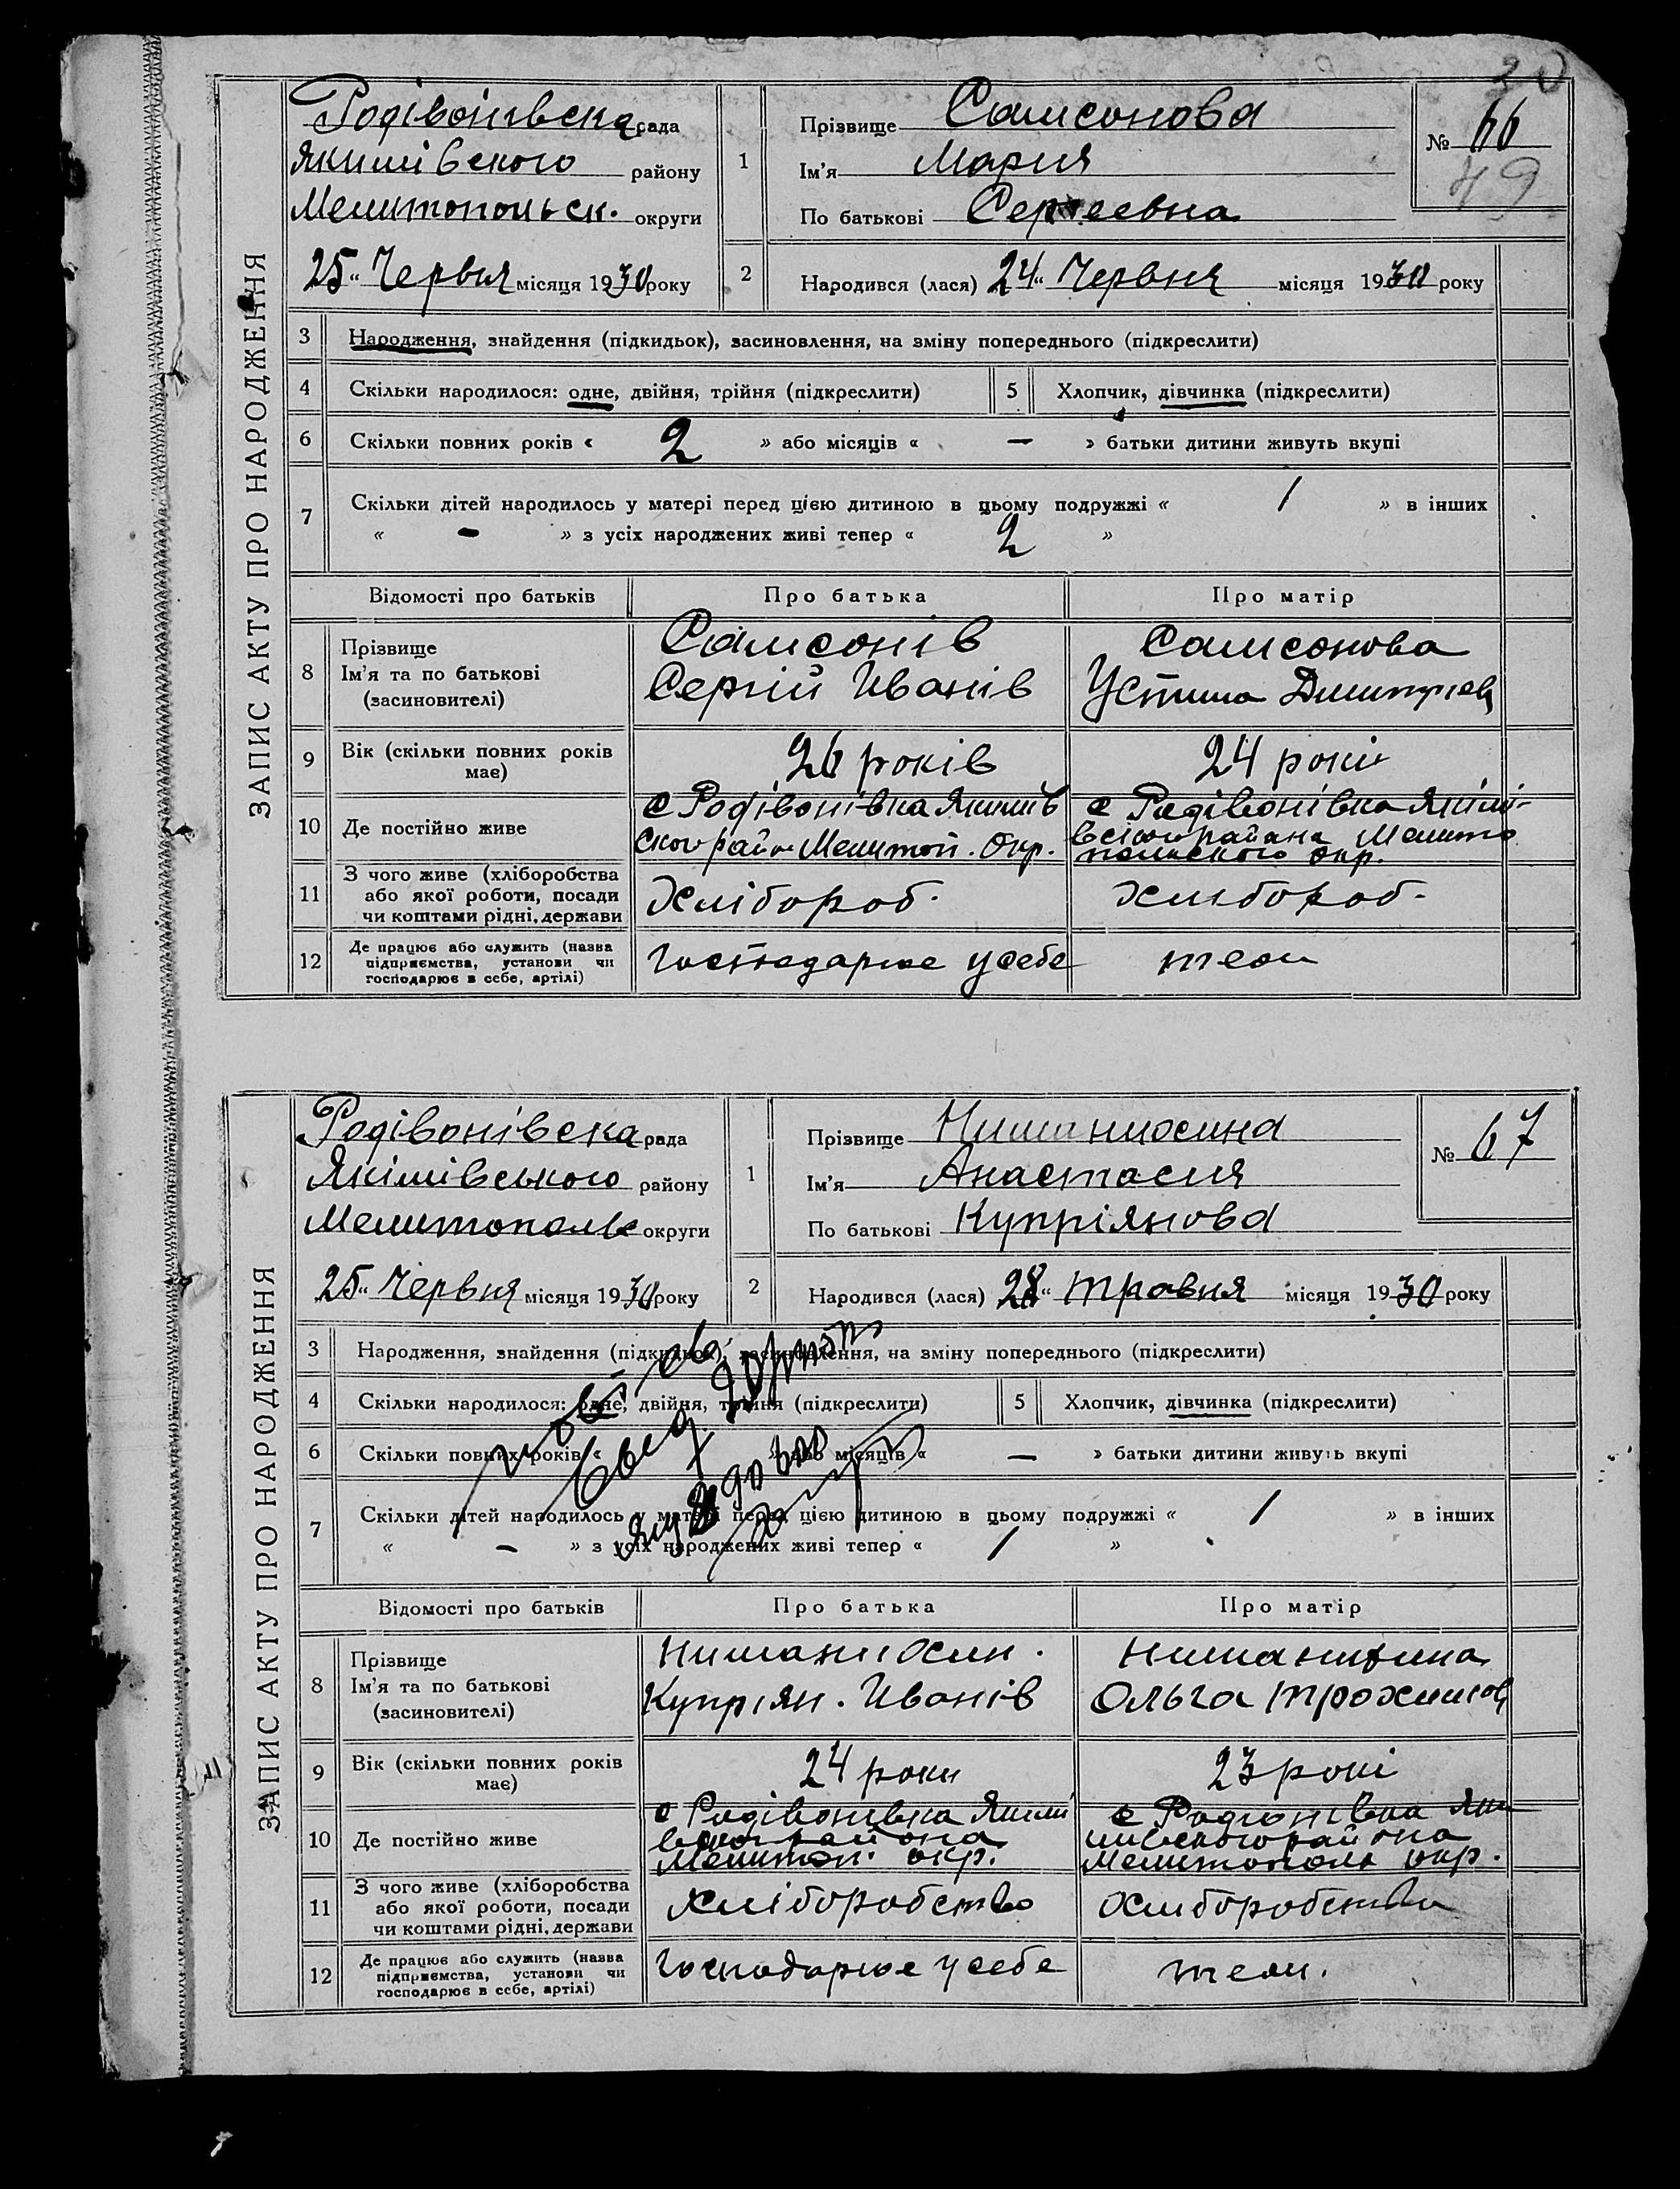 20
ЗАПИС АКТУ ПРО НАРОДЖЕННЯ
Родівонівска рада
Якимівского району
Мелитопольск. округи
25 „ Червня місяця 1930 року
1 Прізвище Самсонова
Ім'я Мария
По батькові Сергеевна
№ 66
49
2 Народився (лася) 24 „ Червня місяця 1930 року
3 Народження, знайдення (підкидьок), засиновлення, на зміну попереднього (підкреслити)
4 Скільки народилося: одне, двійня, трійня (підкреслити) 5 Хлопчик, дівчинка (підкреслити)
6 Скільки повних років « 2 » або місяців « — » батьки дитини живуть вкупі
7 Скільки дітей народилось у матері перед цією дитиною в цьому подружжі « 1 » в інших
« - » з усіх народжених живі тепер « 2 »
Відомості про батьків Про батька Про матір
8 Прізвище
Ім'я та по батькові
(засиновителі)
Самсонів
Сергій Иванів
Самсонова
Устина
9 Вік (скільки повних років
має)
26 років
24 роки
10 Де постійно живе
с Родівонівка Якимів
ског район Мелитоп. Окр.
с Родівонівка Якімі-
вского района Мелито
польского окр.
11 З чого живе (хліборобства
або якої роботи, посади
чи коштами рідні, держави
Хлібороб.
Хлибороб.
12 Де працює або служить (назва
підприємства, установи чи
господарює в себе, артілі)
Господарює у себе
теж
ЗАПИС АКТУ ПРО НАРОДЖЕННЯ
Родівонівска рада
Якімівського району
Мелитополь округи
25 „ Червня місяця 1930 року
1 Прізвище
Ім'я Анастасия
По батькові Купріянова
№ 67
2 Народився (лася) 28 „ травня місяця 1930 року
3 Народження, знайдення (підкидьок), засиновлення, на зміну попереднього (підкреслити)
4 Скільки народилося: одне, двійня, трійня (підкреслити) 5 Хлопчик, дівчинка (підкреслити)
6 Скільки повних років « » або місяців « — » батьки дитини живуть вкупі
7 Скільки дітей народилось у матері перед цією дитиною в цьому подружжі « 1 » в інших
« - » з усіх народжених живі тепер « 1 »
Відомості про батьків Про батька Про матір
8 Прізвище
Ім'я та по батькові
(засиновителі)
Купріян. Иванів
Ольга
9 Вік (скільки повних років
має)
24 роки
23 рокі
10 Де постійно живе
с Родівонівка Якимі
района
Мелитоп. окр.
с Родионівка Яки
мівского района
Мелитополь окр.
11 З чого живе (хліборобства
або якої роботи, посади
чи коштами рідні, держави
хліборобство
Хлиборобство
12 Де працює або служить (назва
підприємства, установи чи
господарює в себе, артілі)
Господарює у себе
теж.